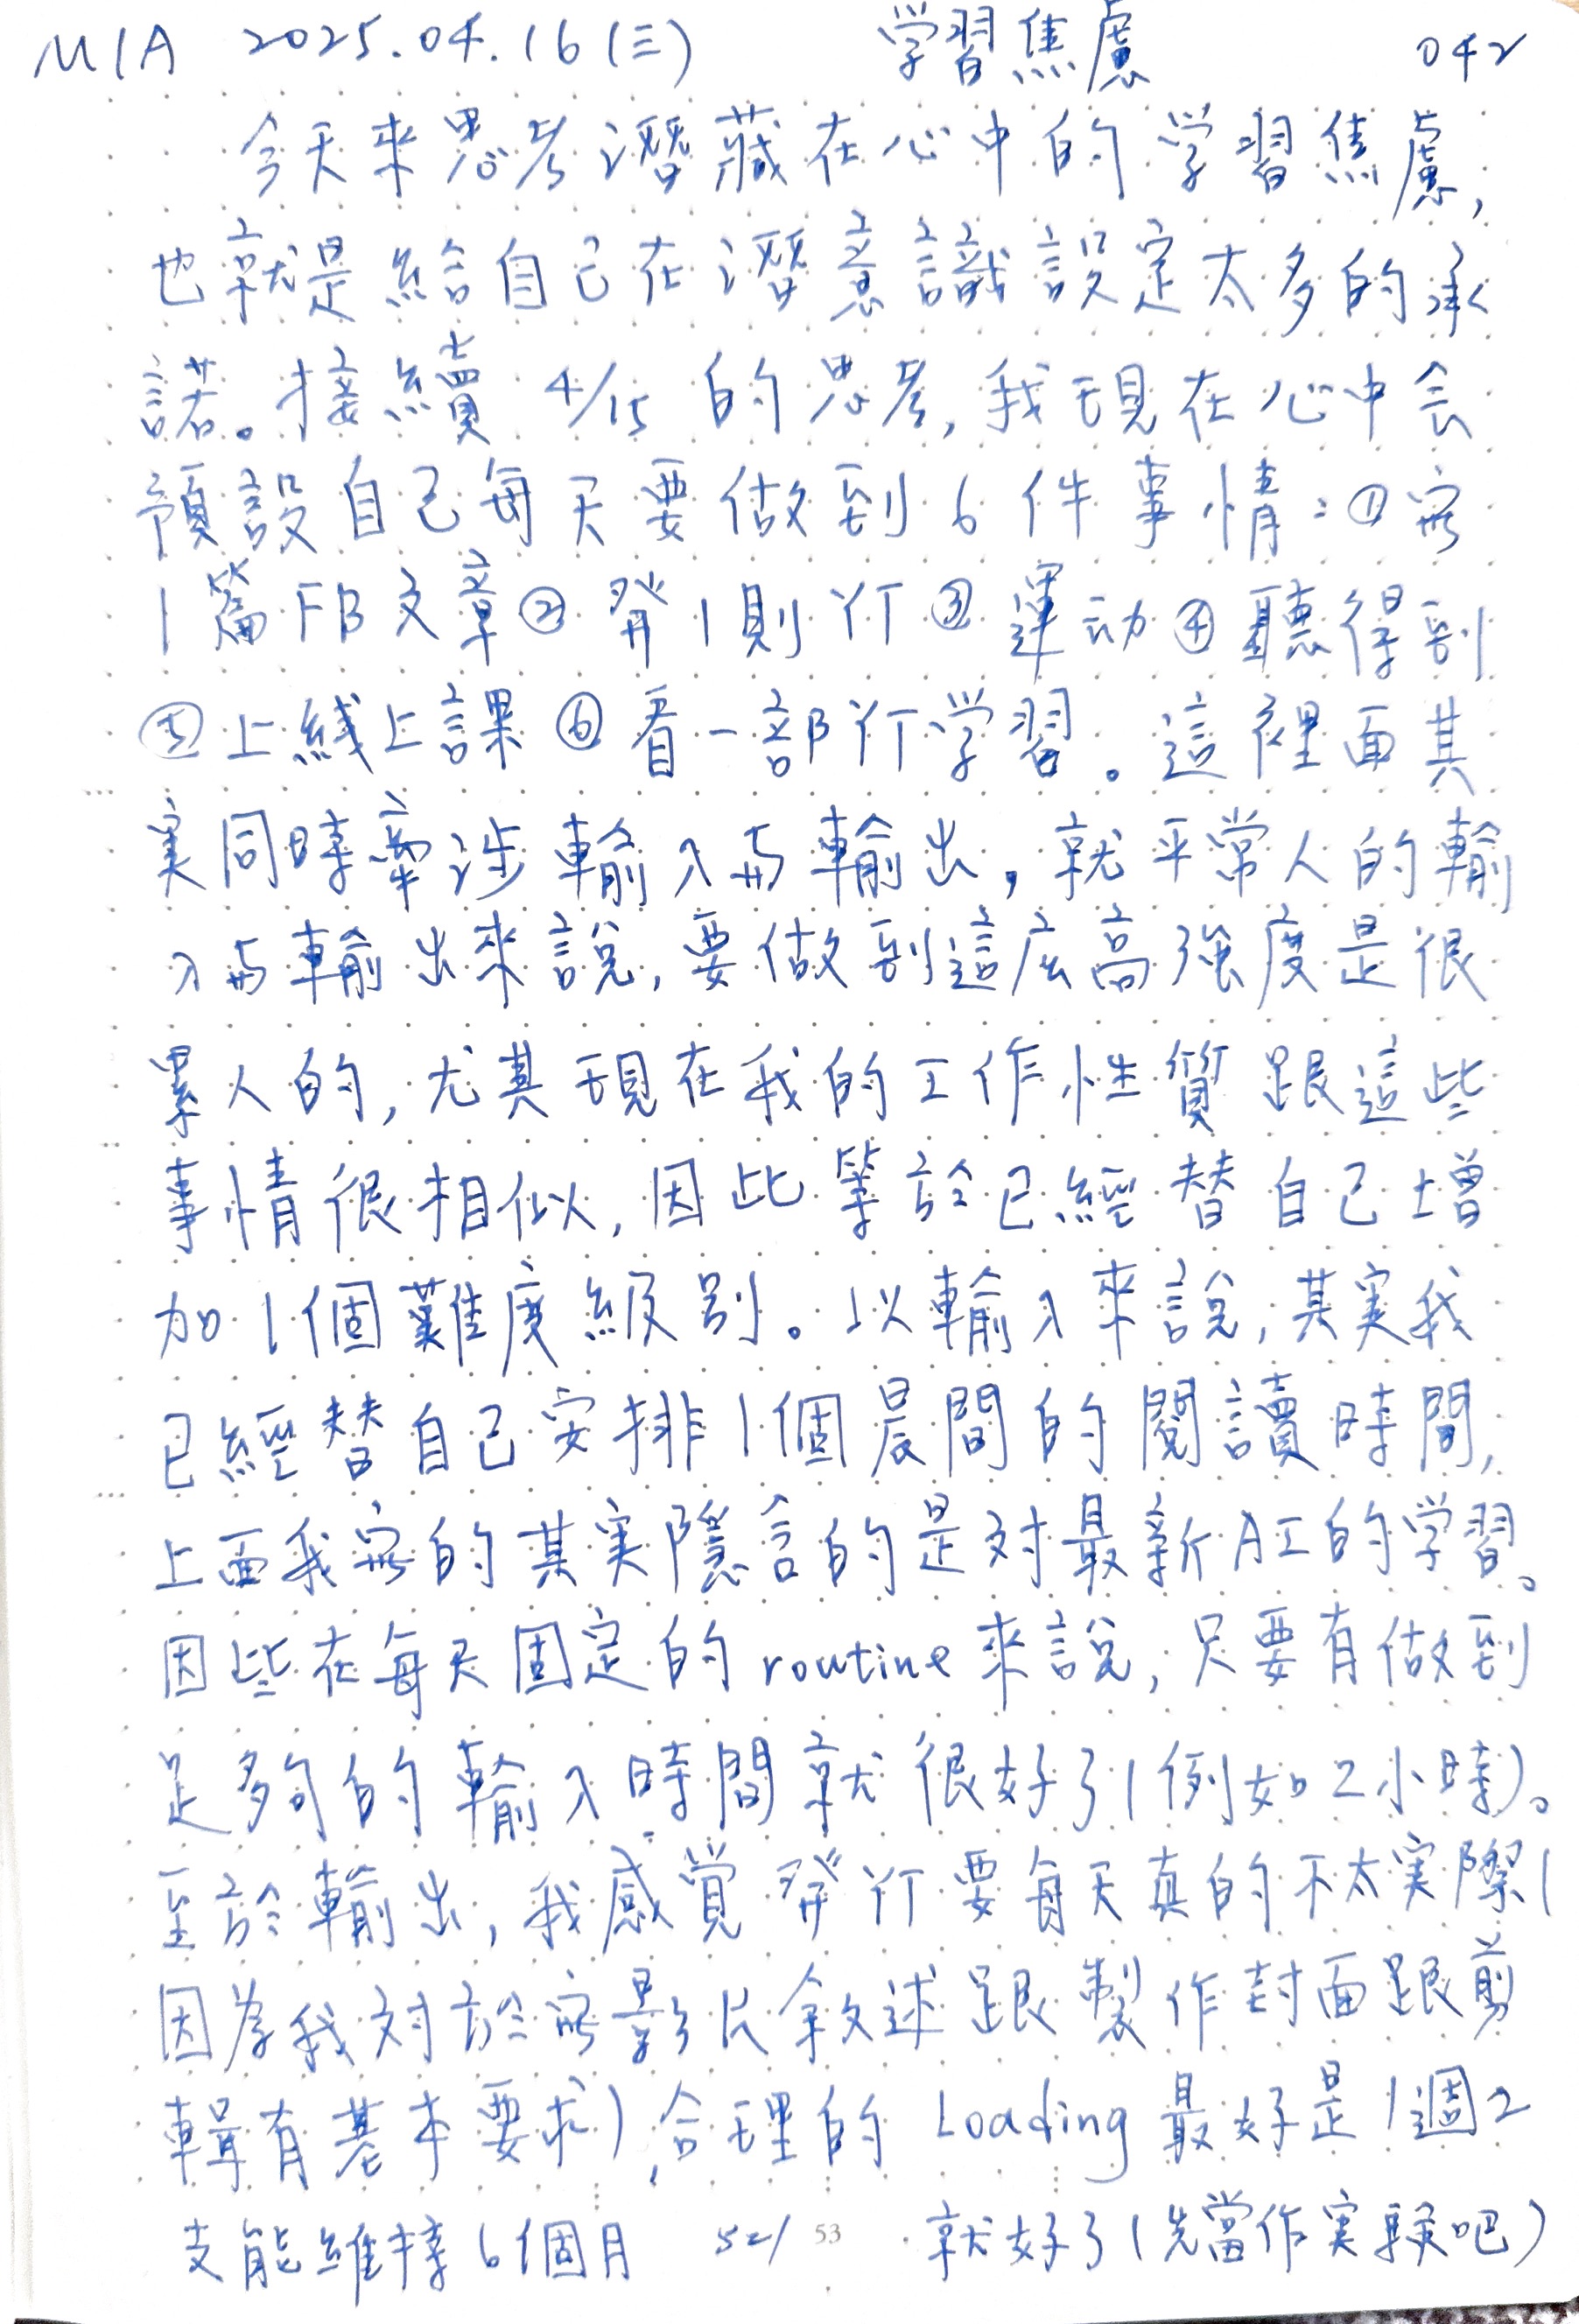 MIA 2025.04.16(三) 学習焦慮 042
今天來思考潛藏在心中的学習焦慮,
也就是給自己在潛意識設定太多的承
諾。接續 4/15 的思考,我現在心中会
預設自己每天要做到6件事情:①寫
1篇FB文章②發1則YT③運动④聽得到
⑤上綫上課⑥看一部YT学習。這裡面其
実同時牽涉輸入与輸出,就平常人的輸
入与輸出來說,要做到這麼高強度是很
累人的,尤其現在我的工作性質跟這些
事情很相似,因此等於已經替自己增
加1個難度級別。以輸入來說,其実我
已經替自己安排1個晨間的閱讀時間,
上面我寫的其実隱含的是对最新AI的学習。
因此在每天固定的routine來說,只要有做到
足夠的輸入時間就很好了(例如2小時)。
至於輸出,我感覚發YT要每天真的不太実際(
因為我对於寫影片敘述跟製作封面跟剪
輯有基本要求),合理的Loading最好是1週2
支能維持6個月 52/ 53 就好了(先當作実驗吧)